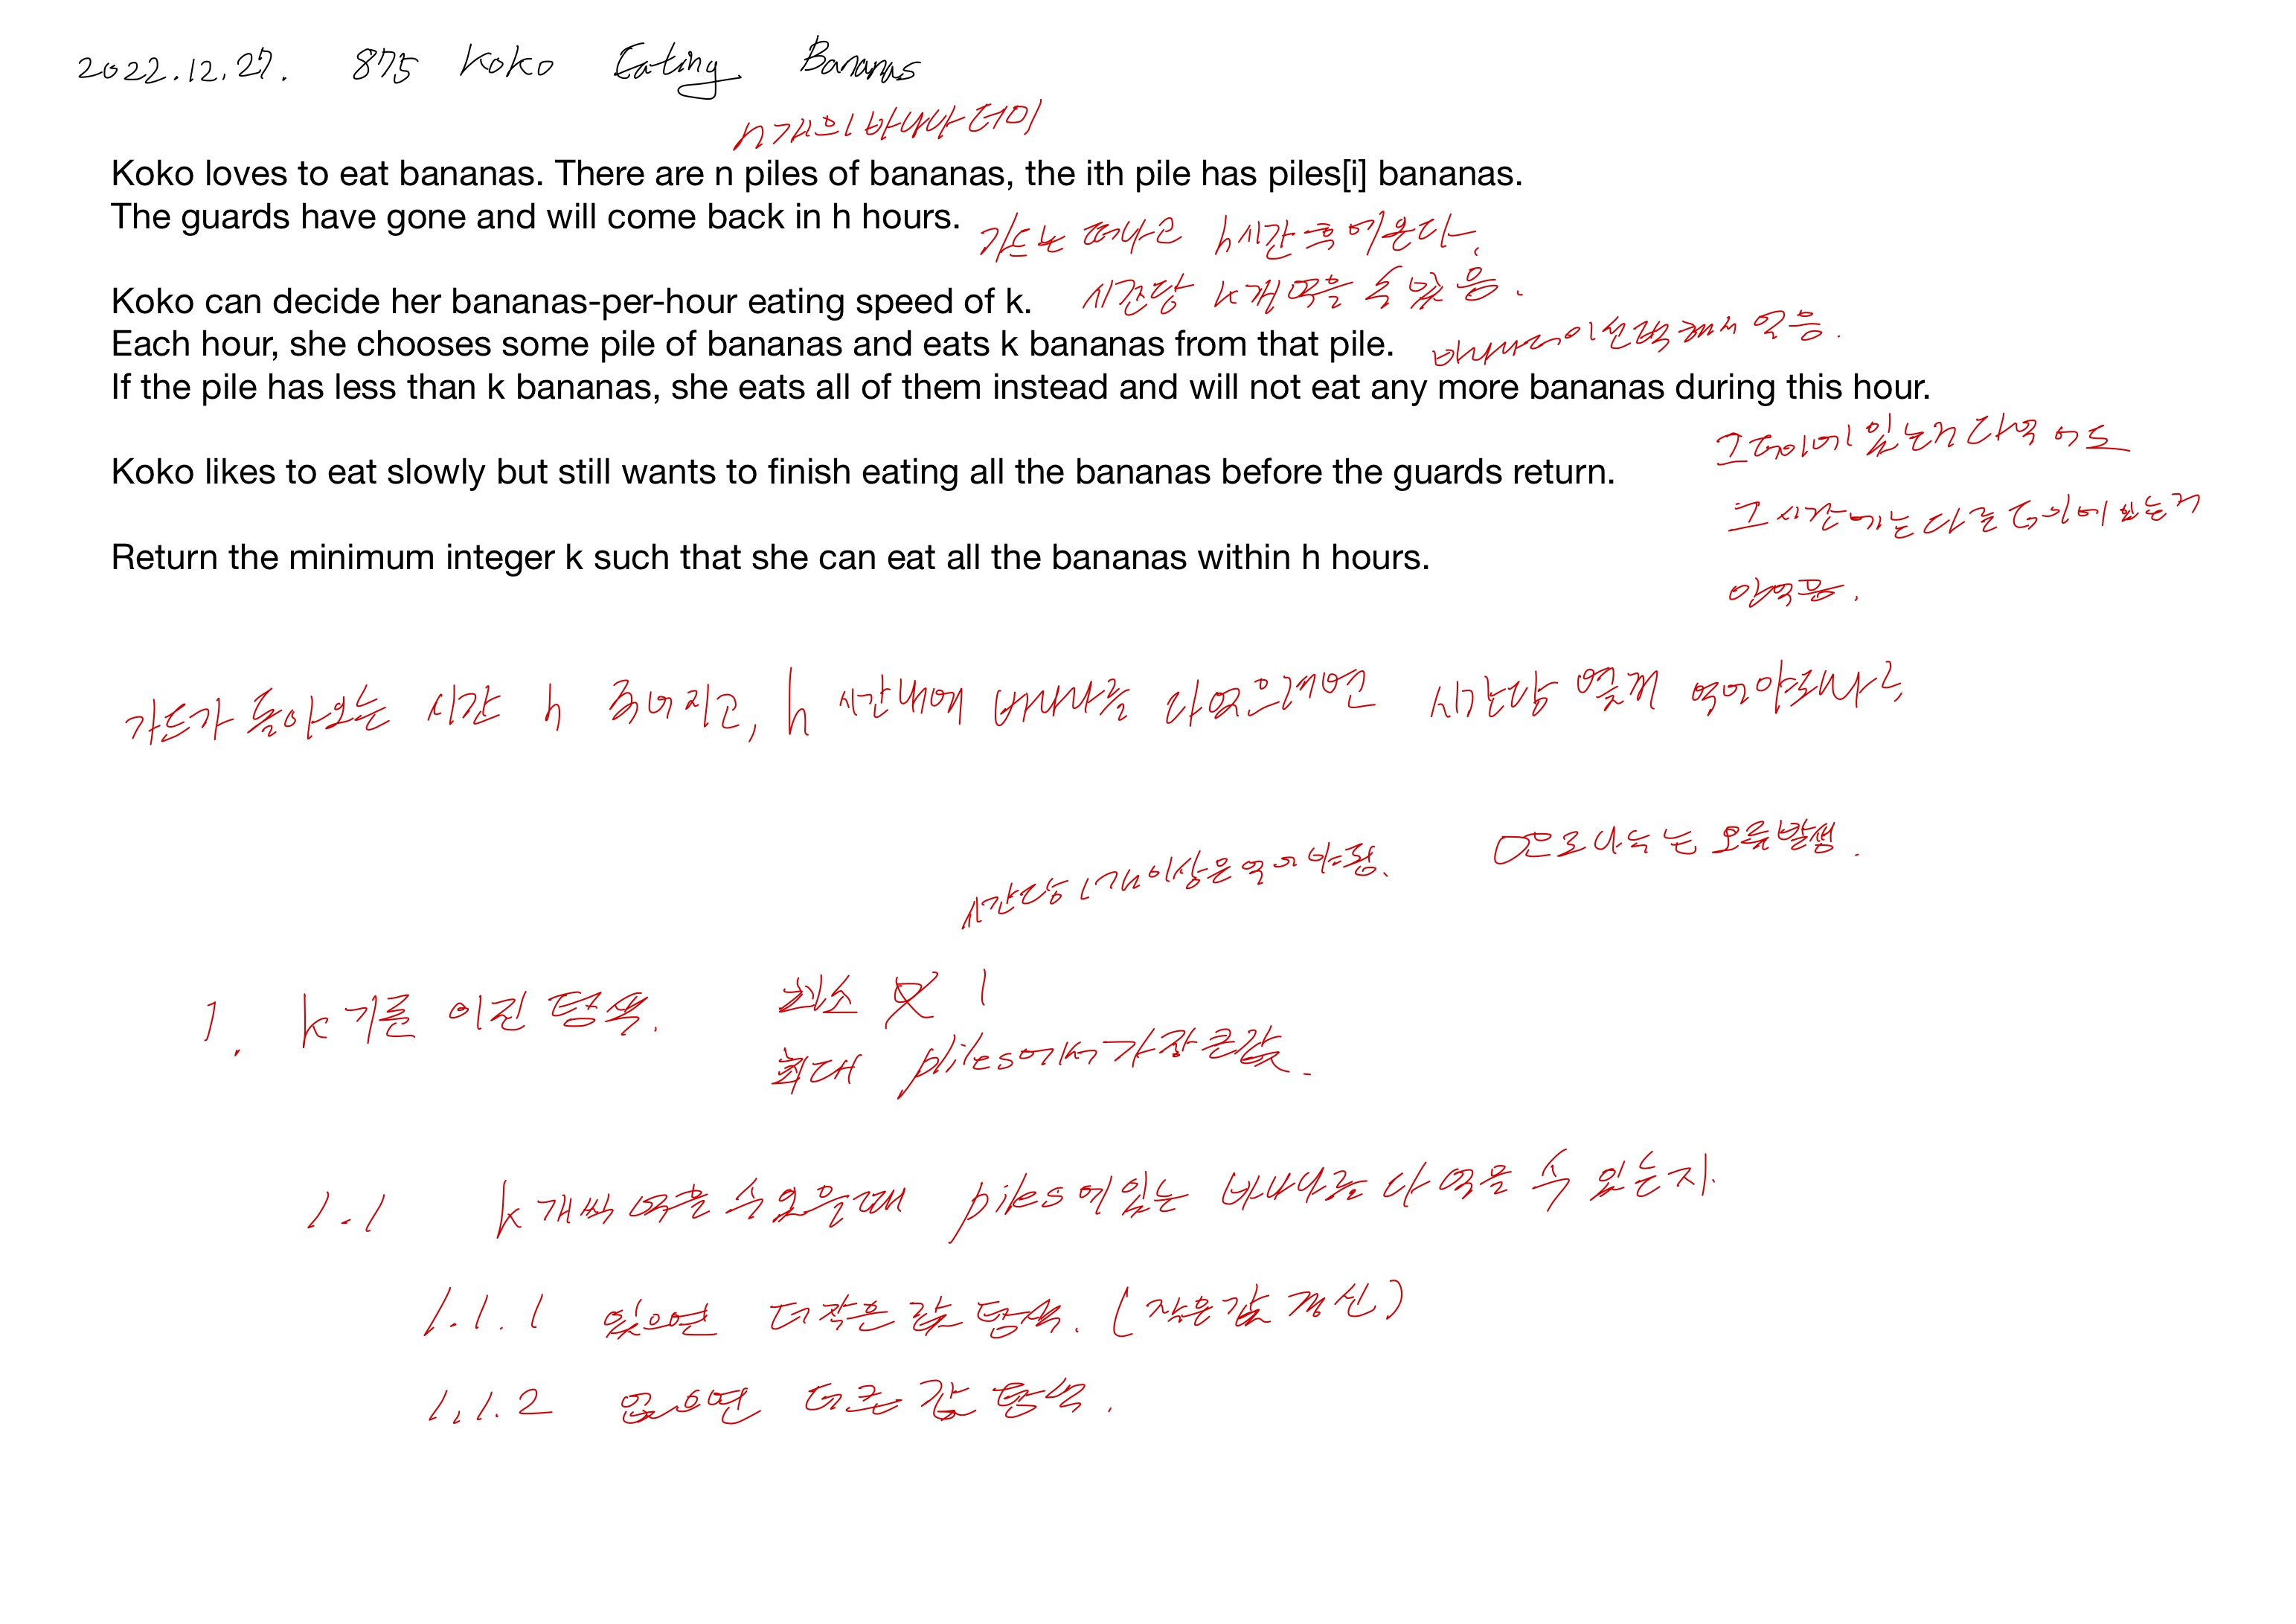 2022.12.27. 875 Koko Eating Bananas
n개의 바나나 더미
Koko loves to eat bananas. There are n piles of bananas, the ith pile has piles[i] bananas.
The guards have gone and will come back in h hours.
가드는 떠나고 h시간 후에 온다.
Koko can decide her bananas-per-hour eating speed of k.
시간당 k개 먹을 수 있음.
Each hour, she chooses some pile of bananas and eats k bananas from that pile.
바나나더미 선택해서 먹음.
If the pile has less than k bananas, she eats all of them instead and will not eat any more bananas during this hour.
그 더미에 있는거 다 먹어도
Koko likes to eat slowly but still wants to finish eating all the bananas before the guards return.
그 시간에는 다른 더미에 있는거
Return the minimum integer k such that she can eat all the bananas within h hours.
안먹음.
가드가 돌아오는 시간 h 주어지고, h 시간내에 바나나를 다먹으려면 시간당 몇개 먹어야되나?
0으로 나누는 오류발생.
시간당 1개 이상은 먹어야됨.
1. k 기준 이진 탐색. 최소 0 1
최대 piles에서 가장 큰값.
1.1 k개씩 먹을 수 있을때 piles에 있는 바나나를 다 먹을 수 있는지.
1.1.1 있으면 더 작은 값 탐색. (작은값 갱신)
1.1.2 없으면 더 큰 값 탐색.